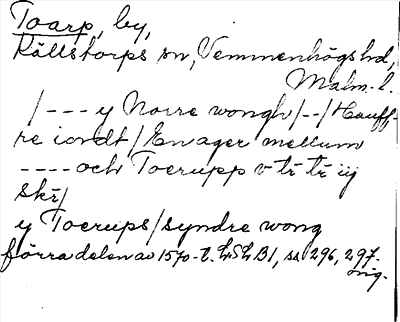 Toarp, by,
Källstorps sn, Vemmenhögs hd,
Malm. l.
/--- y Norre wongh/--/Hauff-
re iordt/En ager mellum
---- och Toerupp v tr tr iij
skr/
y Toerups/syndre wong
förra delen av 1570-t. LSLB1, ss 296, 297.
orig.